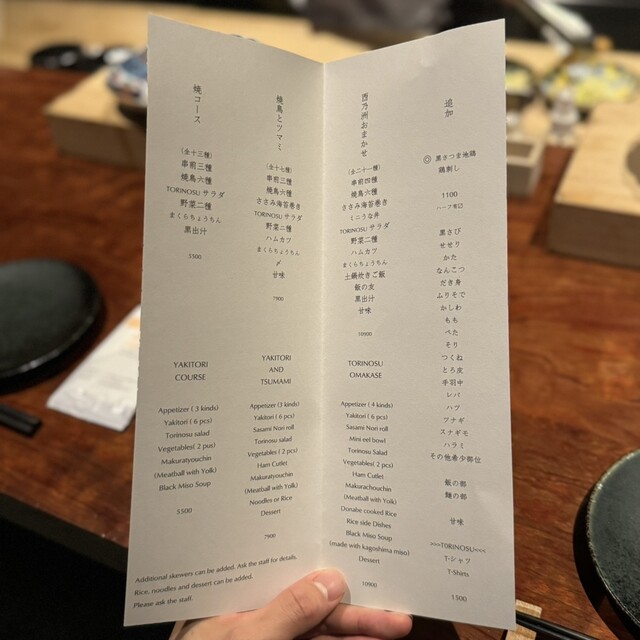 焼コース
（全十三種）
串前三種
焼鳥六種
TORINOSU サラダ
野菜二種
まくらちょうちん
黒出汁
5500
YAKITORI
COURSE
Appetizer ( 3 kinds)
Yakitori ( 6 pcs)
Torinosu salad
Vegetables( 2 pus)
Makuraiyouchin
(Meatball with Yolk)
Black Miso Soup
5500
焼鳥とツマミ
（全十七種）
串前三種
焼鳥六種
ささみ海苔巻き
TORINOSU サラダ
野菜二種
ハムカツ
まくらちょうちん
〆
甘味
7900
YAKITORI
AND
TSUMAMI
Appetizer (3 kinds)
Yakitori ( 6 pcs)
Sasami Nori roll
Torinosu salad
Vegetables ( 2 pcs)
Ham Cutlet
Makuratyouchin
(Meatball with Yolk)
Noodles or Rice
Dessert
7900
酉乃洲おまかせ
（全二十一種）
串前四種
焼鳥六種
ささみ海苔巻き
ミニうな丼
TORINOSU サラダ
野菜二種
ハムカツ
まくらちょうちん
土鍋炊きご飯
飯の友
黒出汁
甘味
10900
TORINOSU
OMAKASE
Appetizer ( 4 kinds)
Yakitori ( 6 pcs)
Sasami Nori roll
Mini eel bowl
Torinosu Salad
Vegetables( 2 pcs)
Ham Cutlet
Makurachouchin
(Meatball with Yolk)
Donabe cooked Rice
Rice side Dishes
Black Miso Soup
(made with kagoshima miso)
Dessert
10900
追加
◎ 黒さつま地鶏
鶏刺し
1100
黒さび
せせり
かた
なんこつ
だき身
ふりそで
かしわ
もも
べた
そり
つくね
とろ皮
手羽中
レバ
ハツ
ツナギ
スナギモ
ハラミ
その他希少部位
飯の部
麺の部
甘味
>>>TORINOSU<<<
T-シャツ
T-Shirts
1500
Additional skewers can be added. Ask the staff for details.
Rice, noodles and dessert can be added.
Please ask the staff.